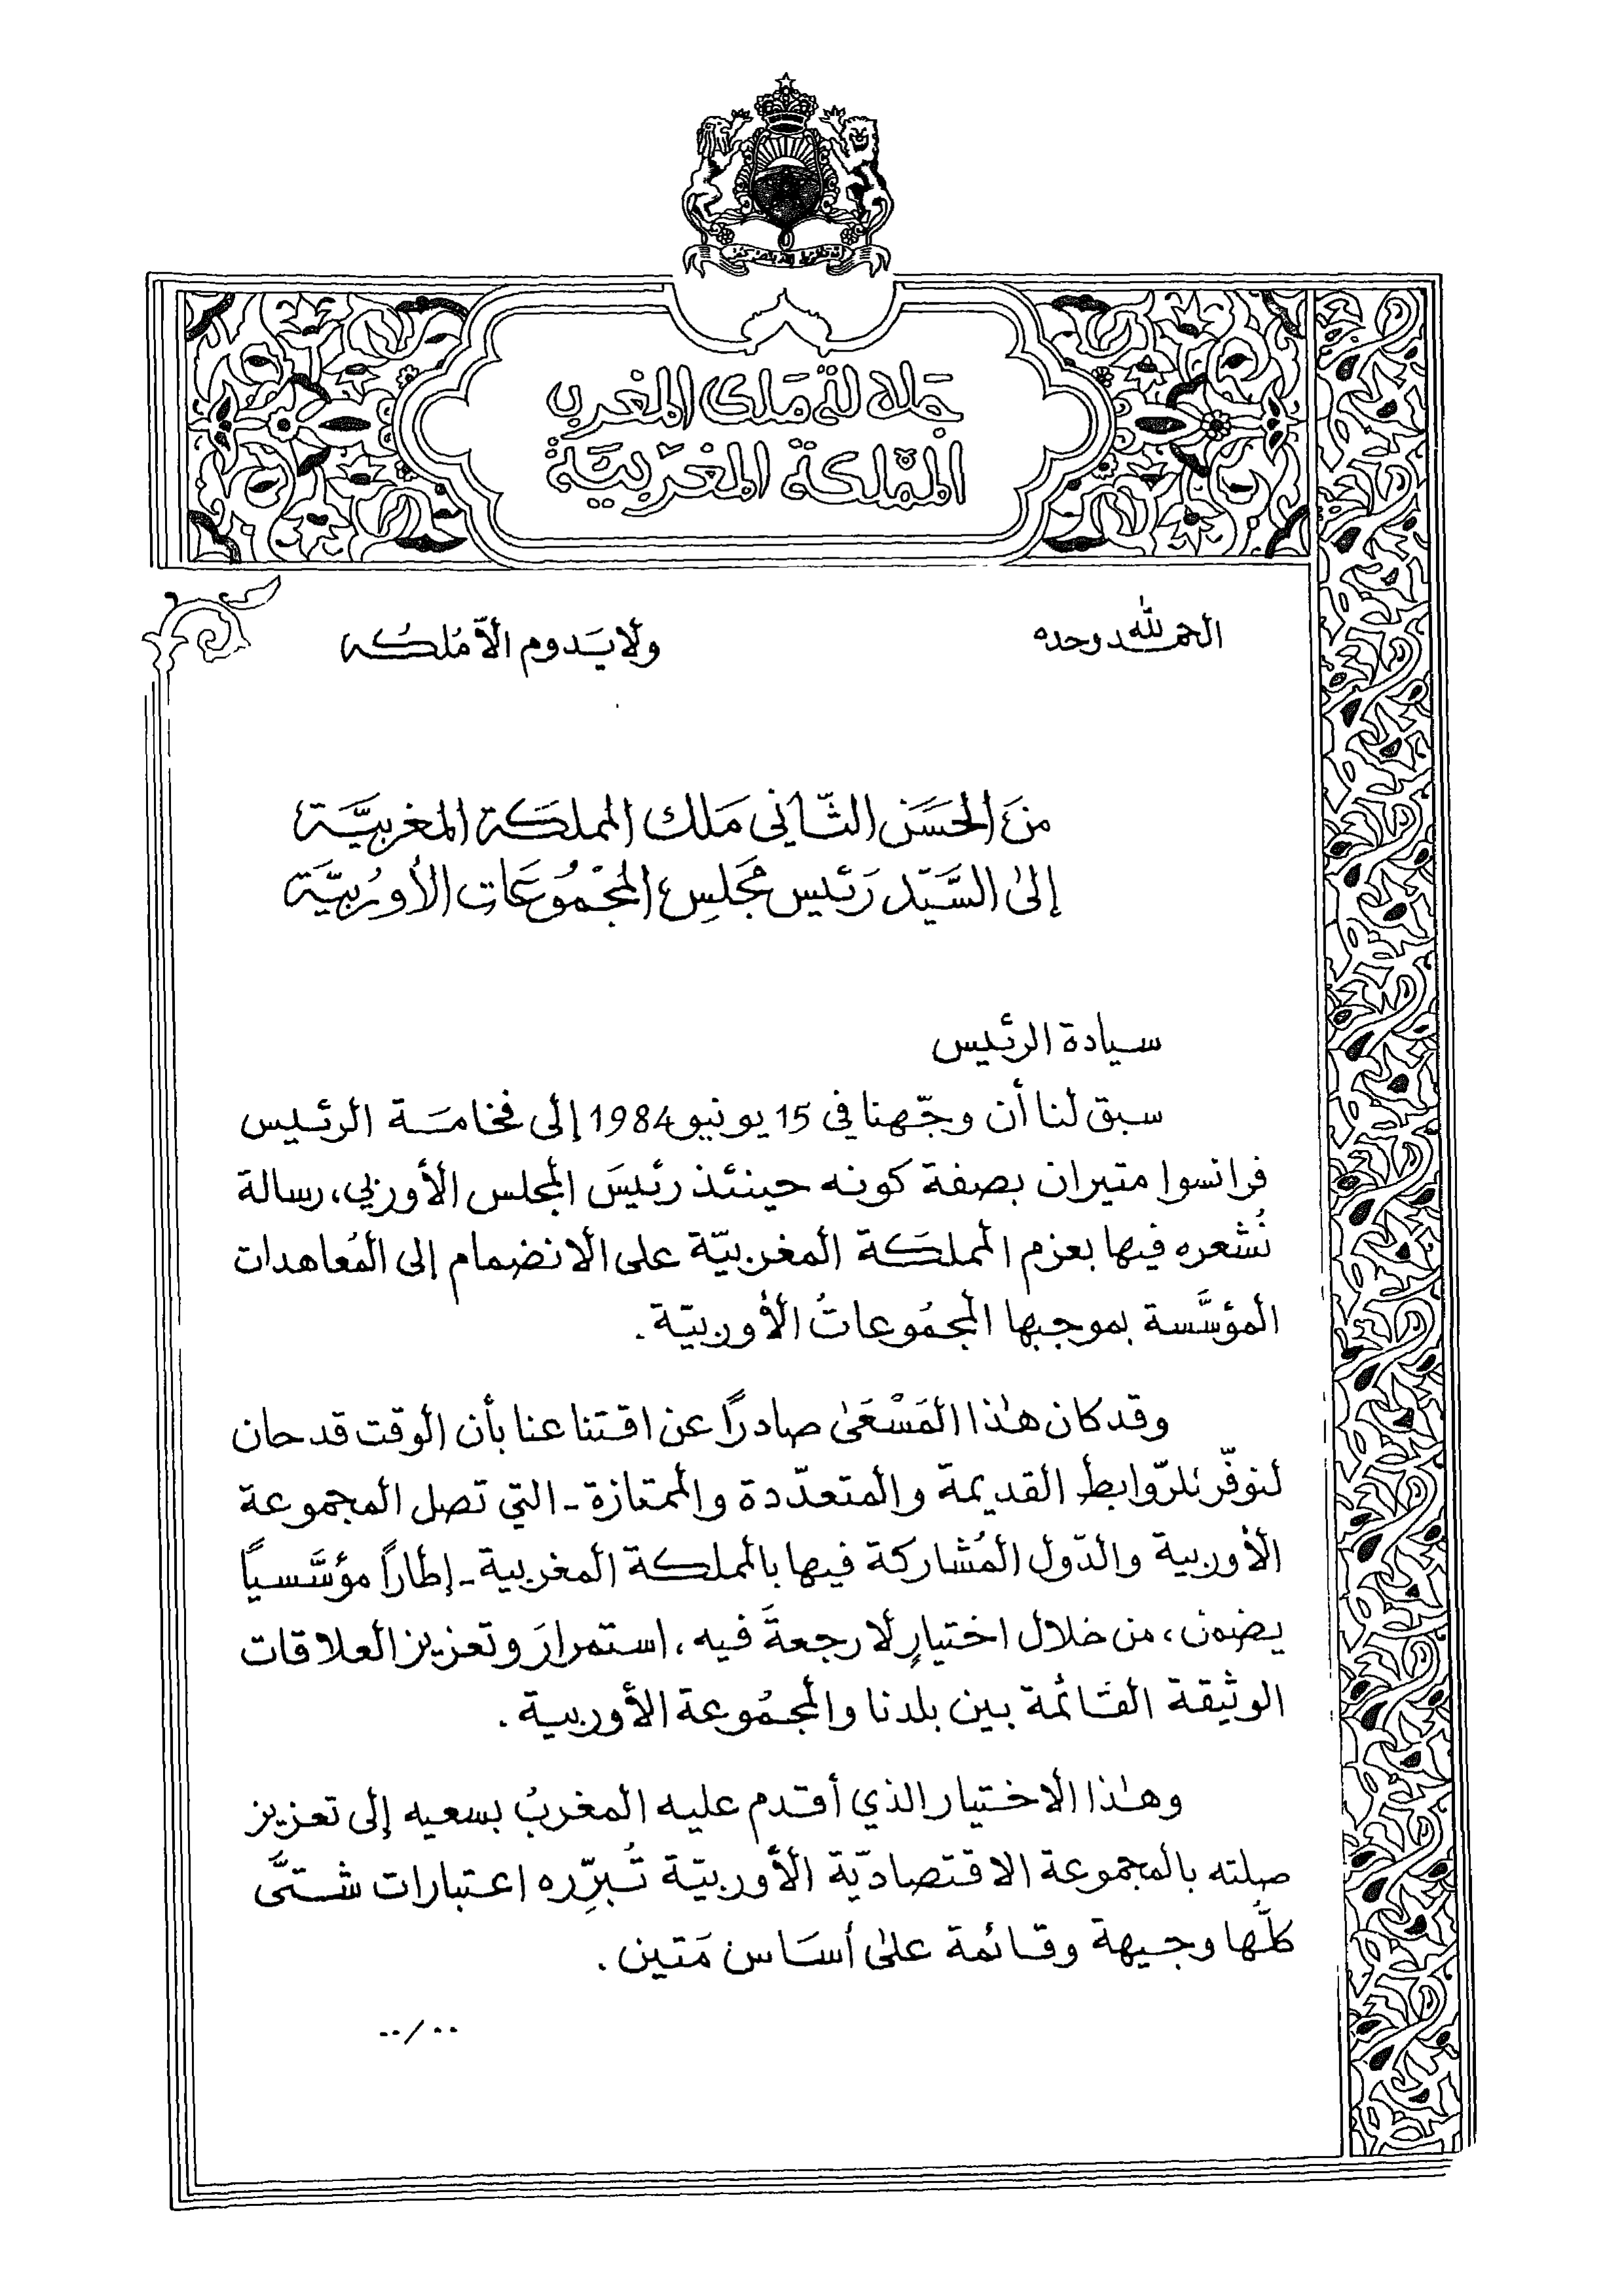 جلالة ملك المغرب
المملكة المغربيّة
الحمد لله وحده
ولا يَدوم إلاّ مُلكُه
منَ الحَسَن الثّاني مَلك المملكَة المغربيَّة
إلى السَّيّد رَئيس مَجلسِ المجْمُوعَات الأورُبيَّة
سيادة الرئيس
سبق لنا أن وجّهنا في 15 يونيو 1984 إلى فخامَة الرئيس
فرانسوا متيران بصفة كونه حينئذ رئيسَ المجلس الأوربي، رسالة
نُشعره فيها بعزم المملكَة المغربيّة على الانضمام إلى المُعاهدات
المؤسَّسة بموجبها المجمُوعاتُ الأوربيّة.
وقد كان هٰذا المَسْعَىٰ صادرًا عن اقتناعنا بأن الوقت قد حان
لنوفّر للرّوابط القديمة والمتعدّدة والممتازة - التي تصل المجموعة
الأوربية والدّول المُشاركة فيها بالمملكة المغربية - إطارًا مؤسَّسيًا
يضمن، من خلال اختيارٍ لا رجعةَ فيه، استمرارَ وتعزيز العلاقات
الوثيقة القائمة بين بلدنا والمجمُوعة الأوربية.
وهٰذا الاختيار الذي أقدم عليه المغربُ بسعيه إلى تعزيز
صلته بالمجموعة الاقتصاديّة الأوربيّة تُبرِّره اعتبارات شتَّى
كلُّها وجيهة وقائمة علىٰ أسَاس مَتين.
../..